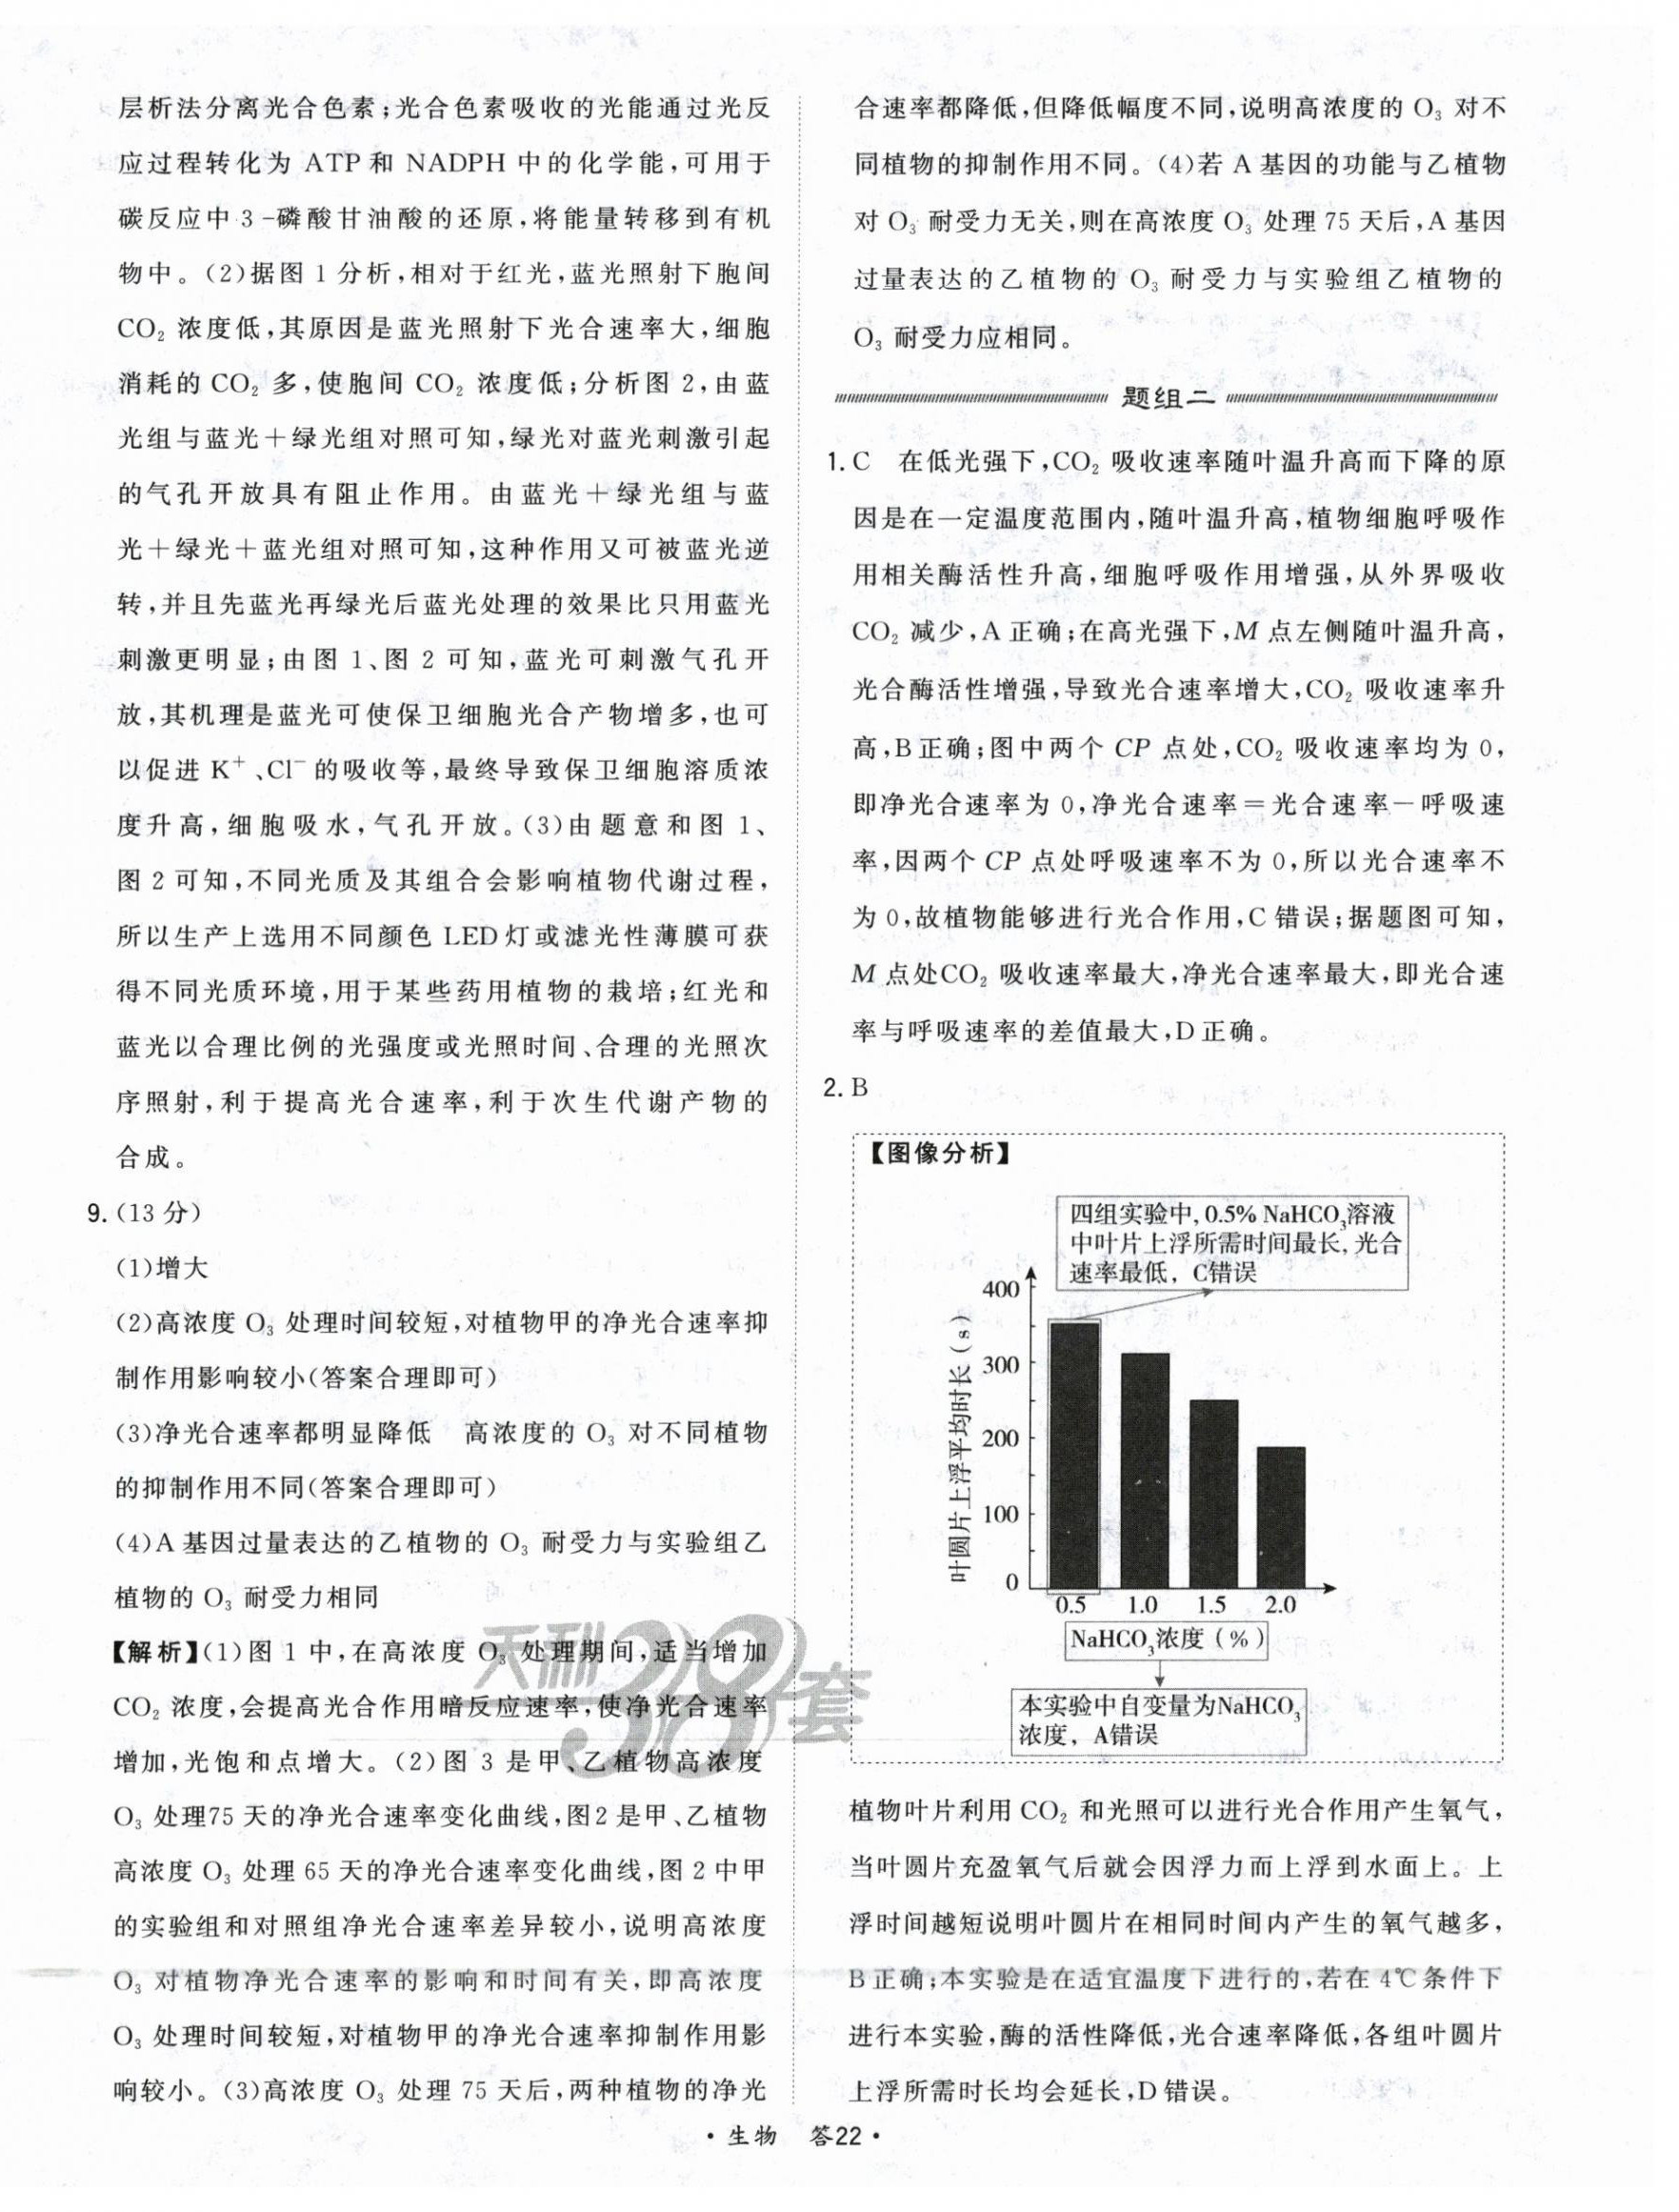 层析法分离光合色素;光合色素吸收的光能通过光反
应过程转化为 ATP 和 NADPH 中的化学能,可用于
碳反应中 3-磷酸甘油酸的还原,将能量转移到有机
物中。(2)据图 1 分析,相对于红光,蓝光照射下胞间
CO₂ 浓度低,其原因是蓝光照射下光合速率大,细胞
消耗的 CO₂ 多,使胞间 CO₂ 浓度低;分析图 2,由蓝
光组与蓝光+绿光组对照可知,绿光对蓝光刺激引起
的气孔开放具有阻止作用。由蓝光+绿光组与蓝
光+绿光+蓝光组对照可知,这种作用又可被蓝光逆
转,并且先蓝光再绿光后蓝光处理的效果比只用蓝光
刺激更明显;由图 1、图 2 可知,蓝光可刺激气孔开
放,其机理是蓝光可使保卫细胞光合产物增多,也可
以促进 K⁺、Cl⁻ 的吸收等,最终导致保卫细胞溶质浓
度升高,细胞吸水,气孔开放。(3)由题意和图 1、
图 2 可知,不同光质及其组合会影响植物代谢过程,
所以生产上选用不同颜色 LED 灯或滤光性薄膜可获
得不同光质环境,用于某些药用植物的栽培;红光和
蓝光以合理比例的光强度或光照时间、合理的光照次
序照射,利于提高光合速率,利于次生代谢产物的
合成。
9.(13 分)
(1)增大
(2)高浓度 O₃ 处理时间较短,对植物甲的净光合速率抑
制作用影响较小(答案合理即可)
(3)净光合速率都明显降低 高浓度的 O₃ 对不同植物
的抑制作用不同(答案合理即可)
(4)A 基因过量表达的乙植物的 O₃ 耐受力与实验组乙
植物的 O₃ 耐受力相同
【解析】(1)图 1 中,在高浓度 O₃ 处理期间,适当增加
CO₂ 浓度,会提高光合作用暗反应速率,使净光合速率
增加,光饱和点增大。(2)图 3 是甲、乙植物高浓度
O₃ 处理75 天的净光合速率变化曲线,图2 是甲、乙植物
高浓度 O₃ 处理 65 天的净光合速率变化曲线,图 2 中甲
的实验组和对照组净光合速率差异较小,说明高浓度
O₃ 对植物净光合速率的影响和时间有关,即高浓度
O₃ 处理时间较短,对植物甲的净光合速率抑制作用影
响较小。(3)高浓度 O₃ 处理 75 天后,两种植物的净光
天利38套
合速率都降低,但降低幅度不同,说明高浓度的 O₃ 对不
同植物的抑制作用不同。(4)若 A 基因的功能与乙植物
对 O₃ 耐受力无关,则在高浓度 O₃ 处理 75 天后,A 基因
过量表达的乙植物的 O₃ 耐受力与实验组乙植物的
O₃ 耐受力应相同。
题组二
1. C 在低光强下,CO₂ 吸收速率随叶温升高而下降的原
因是在一定温度范围内,随叶温升高,植物细胞呼吸作
用相关酶活性升高,细胞呼吸作用增强,从外界吸收
CO₂ 减少,A 正确;在高光强下,M 点左侧随叶温升高,
光合酶活性增强,导致光合速率增大,CO₂ 吸收速率升
高,B 正确;图中两个 CP 点处,CO₂ 吸收速率均为 0,
即净光合速率为 0,净光合速率=光合速率-呼吸速
率,因两个 CP 点处呼吸速率不为 0,所以光合速率不
为 0,故植物能够进行光合作用,C 错误;据题图可知,
M 点处CO₂ 吸收速率最大,净光合速率最大,即光合速
率与呼吸速率的差值最大,D 正确。
2. B
【图像分析】
四组实验中, 0.5% NaHCO₃溶液
中叶片上浮所需时间最长, 光合
速率最低, C错误
叶圆片上浮平均时长(s)
400
300
200
100
0
0.5 1.0 1.5 2.0
NaHCO₃浓度(%)
本实验中自变量为NaHCO₃
浓度, A错误
植物叶片利用 CO₂ 和光照可以进行光合作用产生氧气,
当叶圆片充盈氧气后就会因浮力而上浮到水面上。上
浮时间越短说明叶圆片在相同时间内产生的氧气越多,
B 正确;本实验是在适宜温度下进行的,若在 4℃条件下
进行本实验,酶的活性降低,光合速率降低,各组叶圆片
上浮所需时长均会延长,D 错误。
• 生物 答22 •